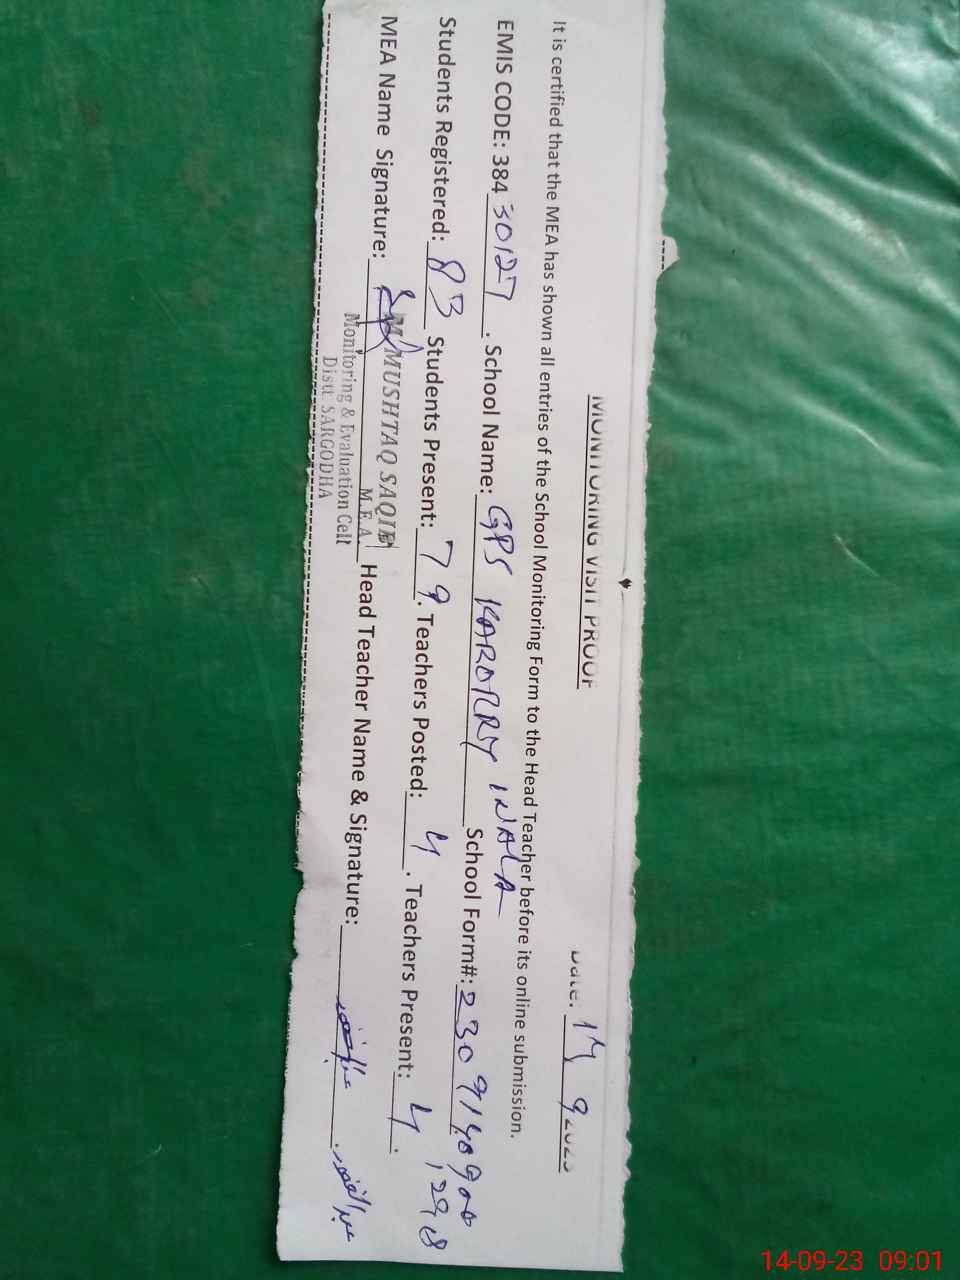 MONITORING VISIT PROOF
Date: 14 9 2023
It is certified that the MEA has shown all entries of the School Monitoring Form to the Head Teacher before its online submission.
EMIS CODE: 384 30127. School Name: GPS KARORRY WALA School Form#: 2309140900
1298
Students Registered: 83 Students Present: 79. Teachers Posted: 4. Teachers Present: 4.
MEA Name Signature: Head Teacher Name & Signature: عبدالغفور
M. MUSHTAQ SAQIB
M.E.A.
Monitoring & Evaluation Cell
Distt. SARGODHA
14-09-23 09:01